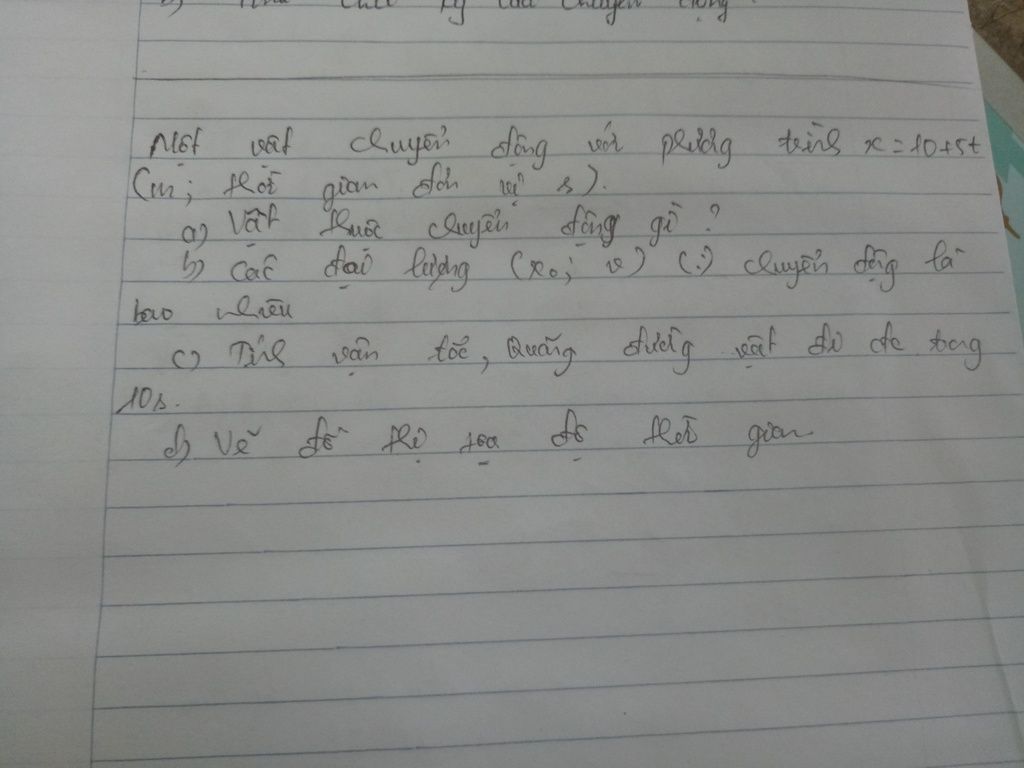 của chuyển động
Một vật chuyển động với phương trình x = 10+5t
(m; thời gian đơn vị s).
a) Vật thuộc chuyển động gì?
b) Các đại lượng (x₀; v) (:) chuyển động là
bao nhiêu
c) Tính vận tốc, Quãng đường vật đi đc trong
10s.
d) Vẽ đồ thị tọa độ thời gian